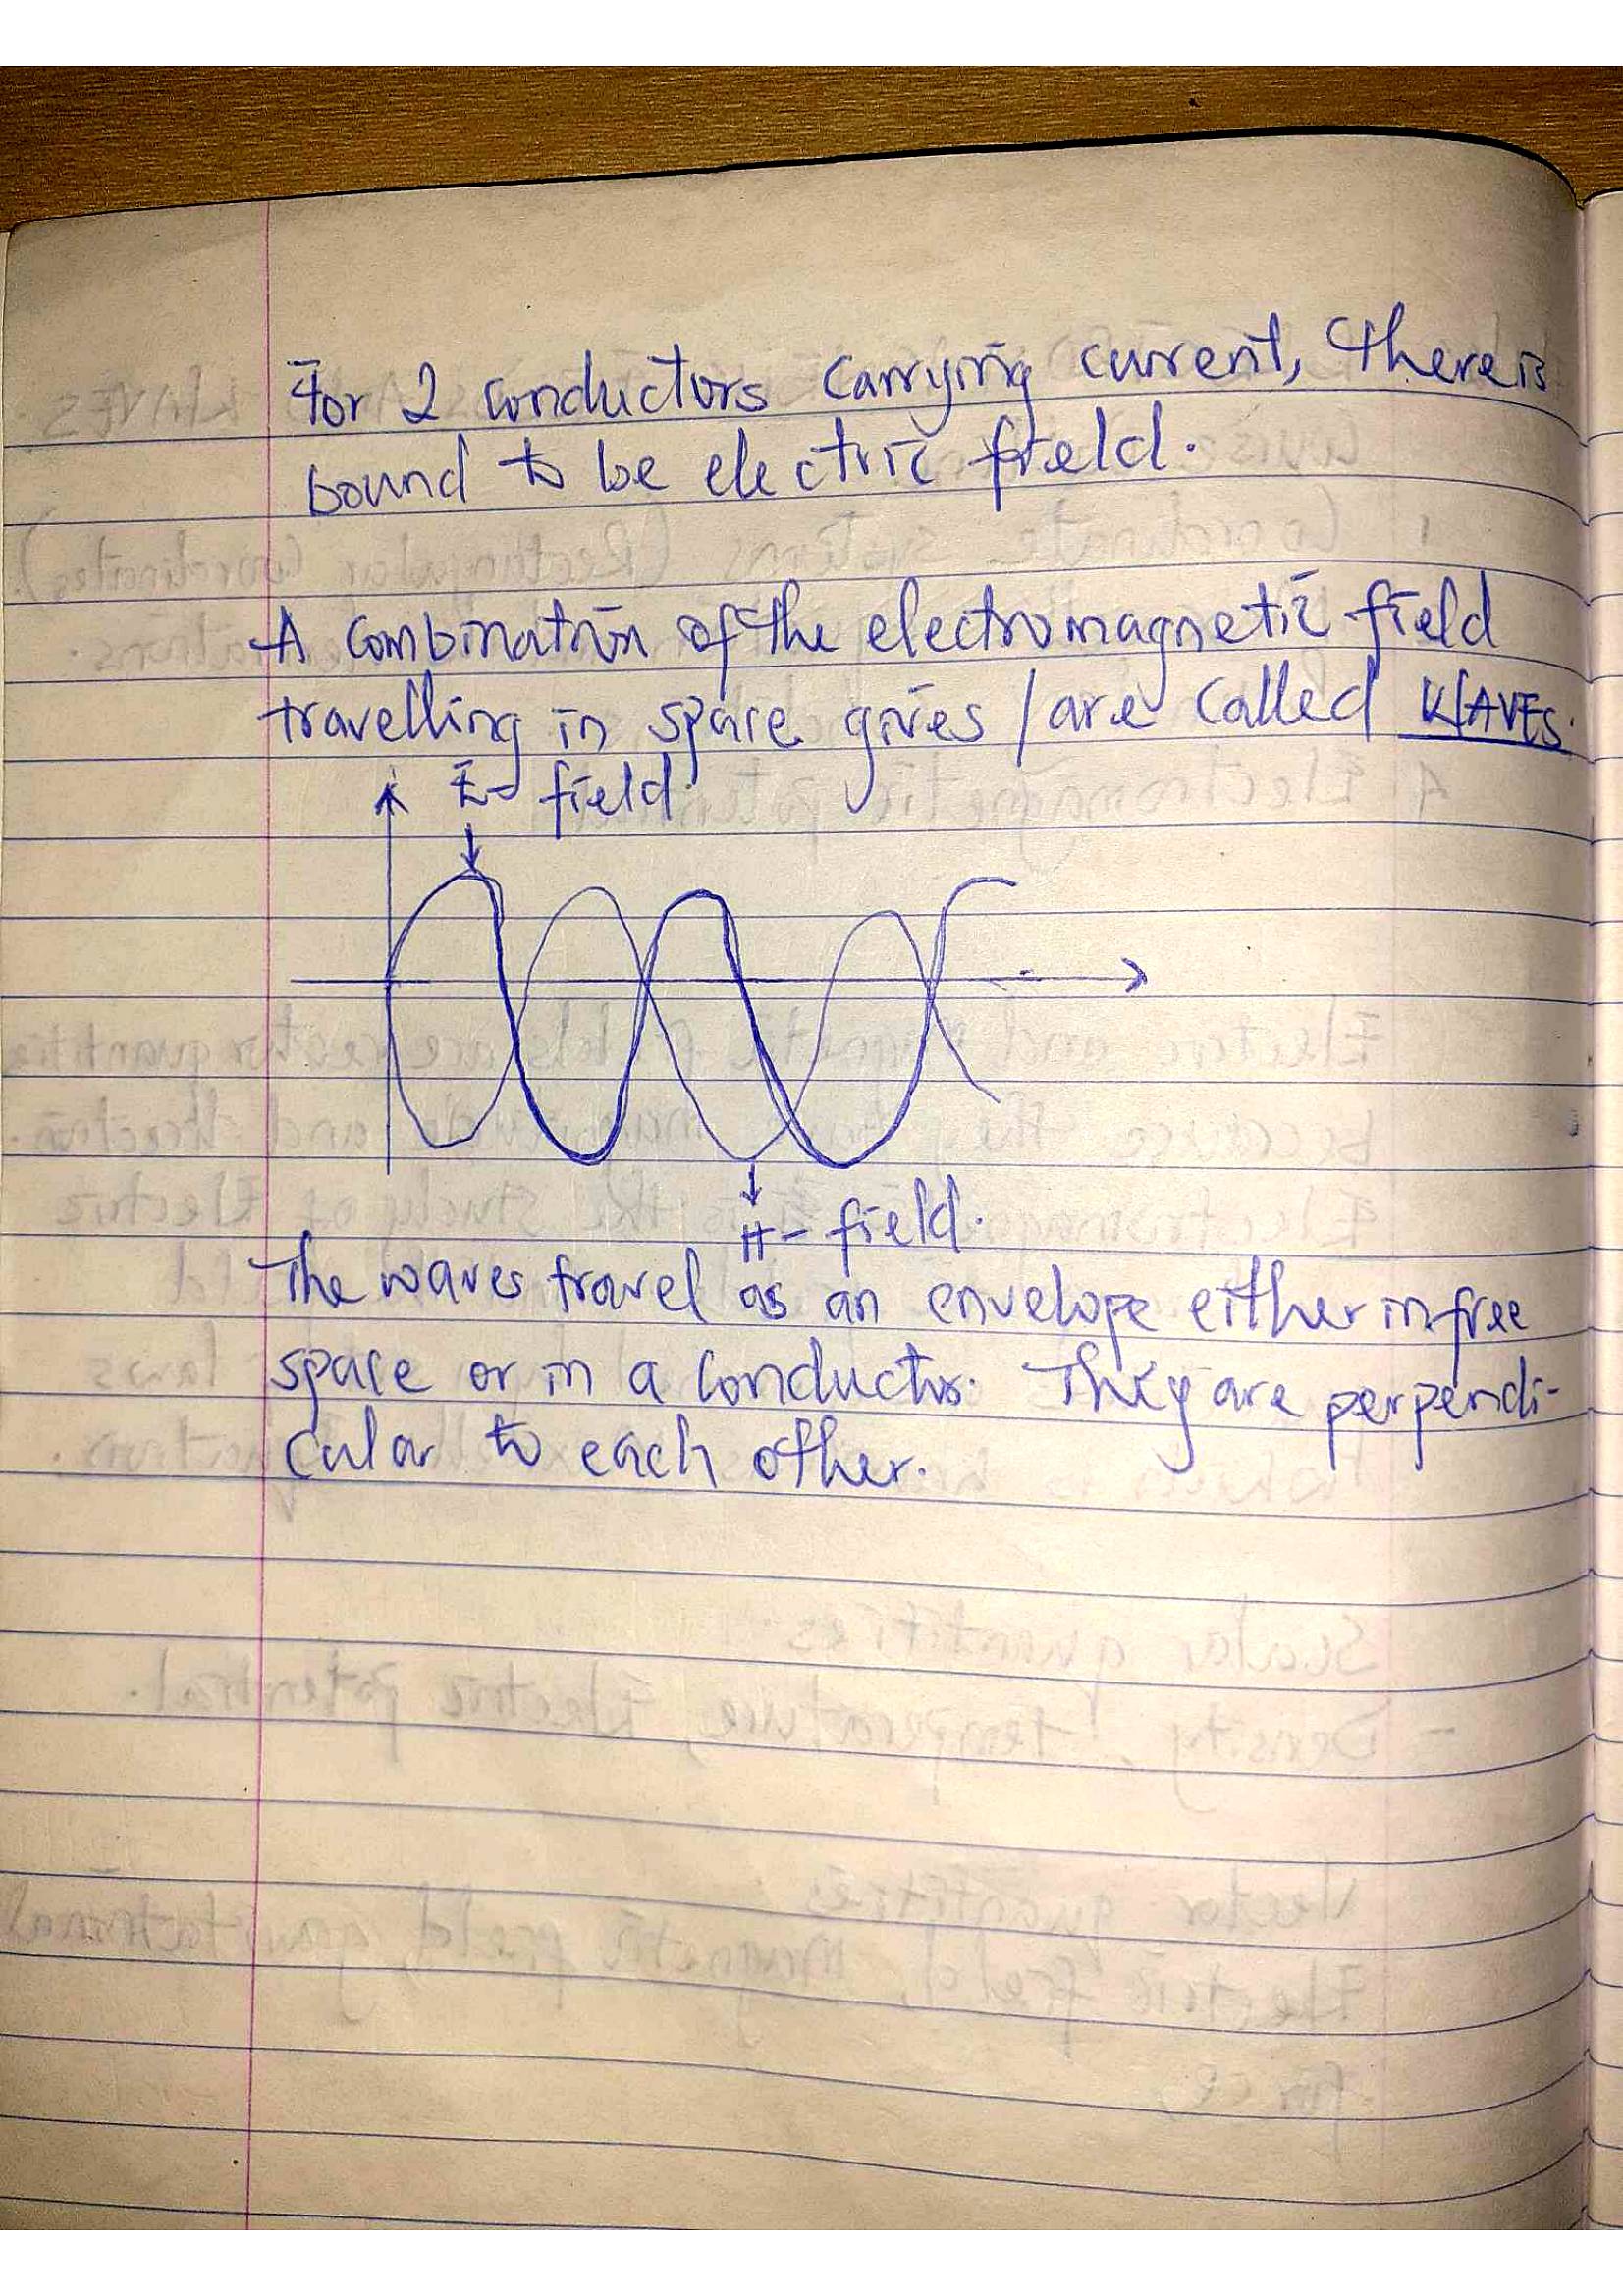 For 2 conductors carrying current, there is
bound to be electric field.
A combination of the electromagnetic field
travelling in space gives / are called WAVES.
E- field.
H- field.
The waves travel as an envelope either in free
space or in a conductor. They are perpendi-
cular to each other.